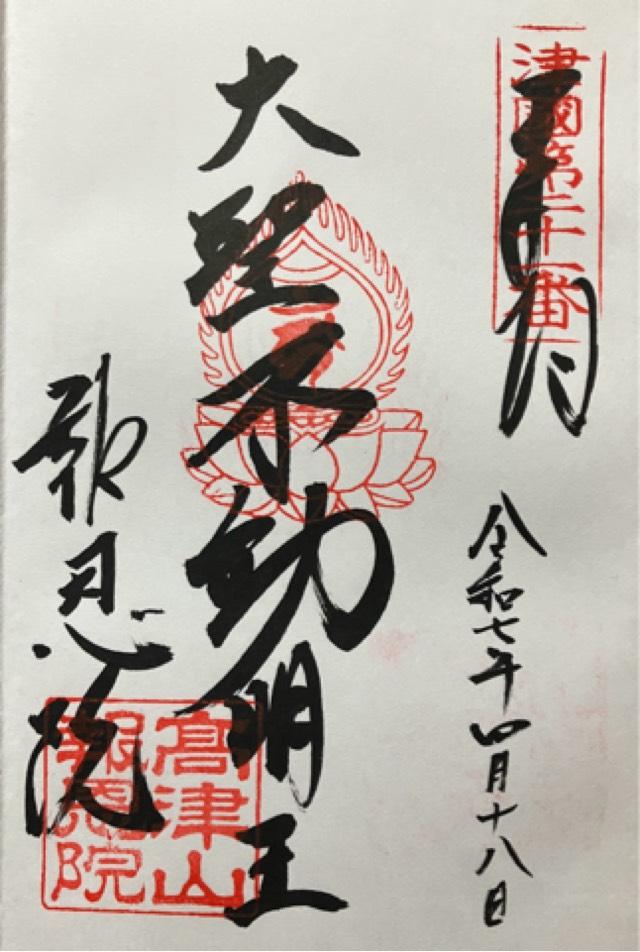 津國第二十一番
令和七年四月十八日
大聖不動明王
報恩院
高津山
報恩院